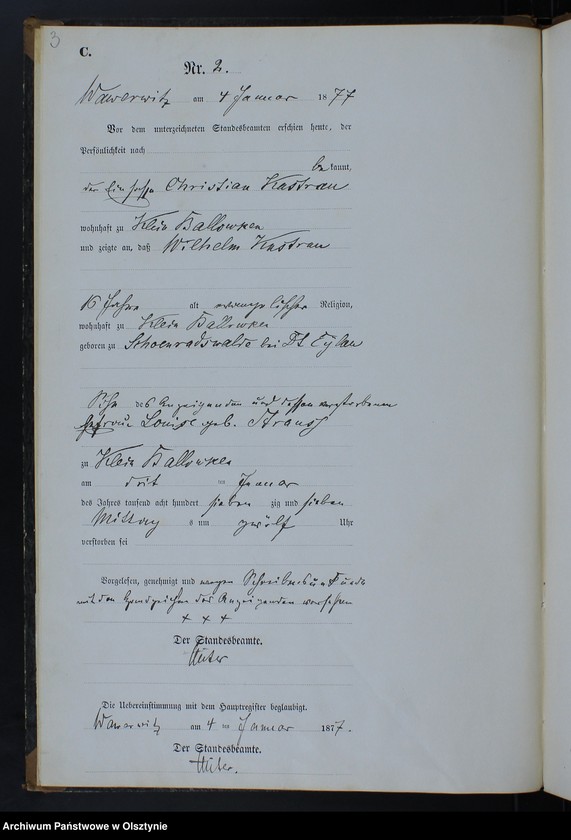 3
C.
Nr. 2.
Wawerwitz am 4 Januar 1877
Vor dem unterzeichneten Standesbeamten erschien heute, der
Persönlichkeit nach
be kannt,
der Einsasse Christian Kastrau
wohnhaft zu Klein Ballowken
und zeigte an, daß Wilhelm Kastrau
16 Jahre alt evangelischer Religion,
wohnhaft zu Klein Ballowken
geboren zu Schoenradswalde bei Dt Eylau
Sohn des Anzeigenden und dessen verstorbenen
Ehefrau Louise geb.
zu Klein Ballowken
am drit ten Januar
des Jahres tausend acht hundert sieben zig und sieben
Mittag s um zwölf Uhr
verstorben sei
Vorgelesen, genehmigt und wegen Schreibens
mit den Handzeichen des Anzeigenden versehen
+ + +
Der Standesbeamte.
Die Uebereinstimmung mit dem Hauptregister beglaubigt.
Wawerwitz am 4 ten Januar 1877.
Der Standesbeamte.
Archiwum Państwowe w Olsztynie